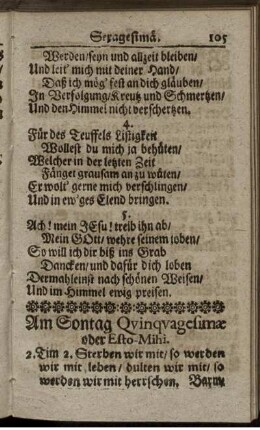 Sexagesimâ. 105
Werden/seyn und allzeit bleiben/
Und leit' mich mit deiner Hand/
Daß ich mög' fest an dich gläuben/
In Verfolgung/Kreutz und Schmertzen/
Und den Himmel nicht verschertzen.
4.
Für des Teuffels Listigkeit
Wollest du mich ja behüten/
Welcher in der letzten Zeit
Fänget grausam an zu wüten/
Er wolt' gerne mich verschlingen/
Und in ew'ges Elend bringen.
5.
Ach! mein JEsu! treib ihn ab/
Mein GOtt/ wehre seinem toben/
So will ich dir biß ins Grab
Dancken/und dafür dich loben
Dermahleinst nach schönen Weisen/
Und im Himmel ewig preisen.
Am Sontag Qvinqvagesimæ
oder Esto-Mihi.
2. Tim 2. Sterben wir mit/ so werden
wir mit leben/ dulten wir mit/ so
werden wir mit herrschen. Barm,